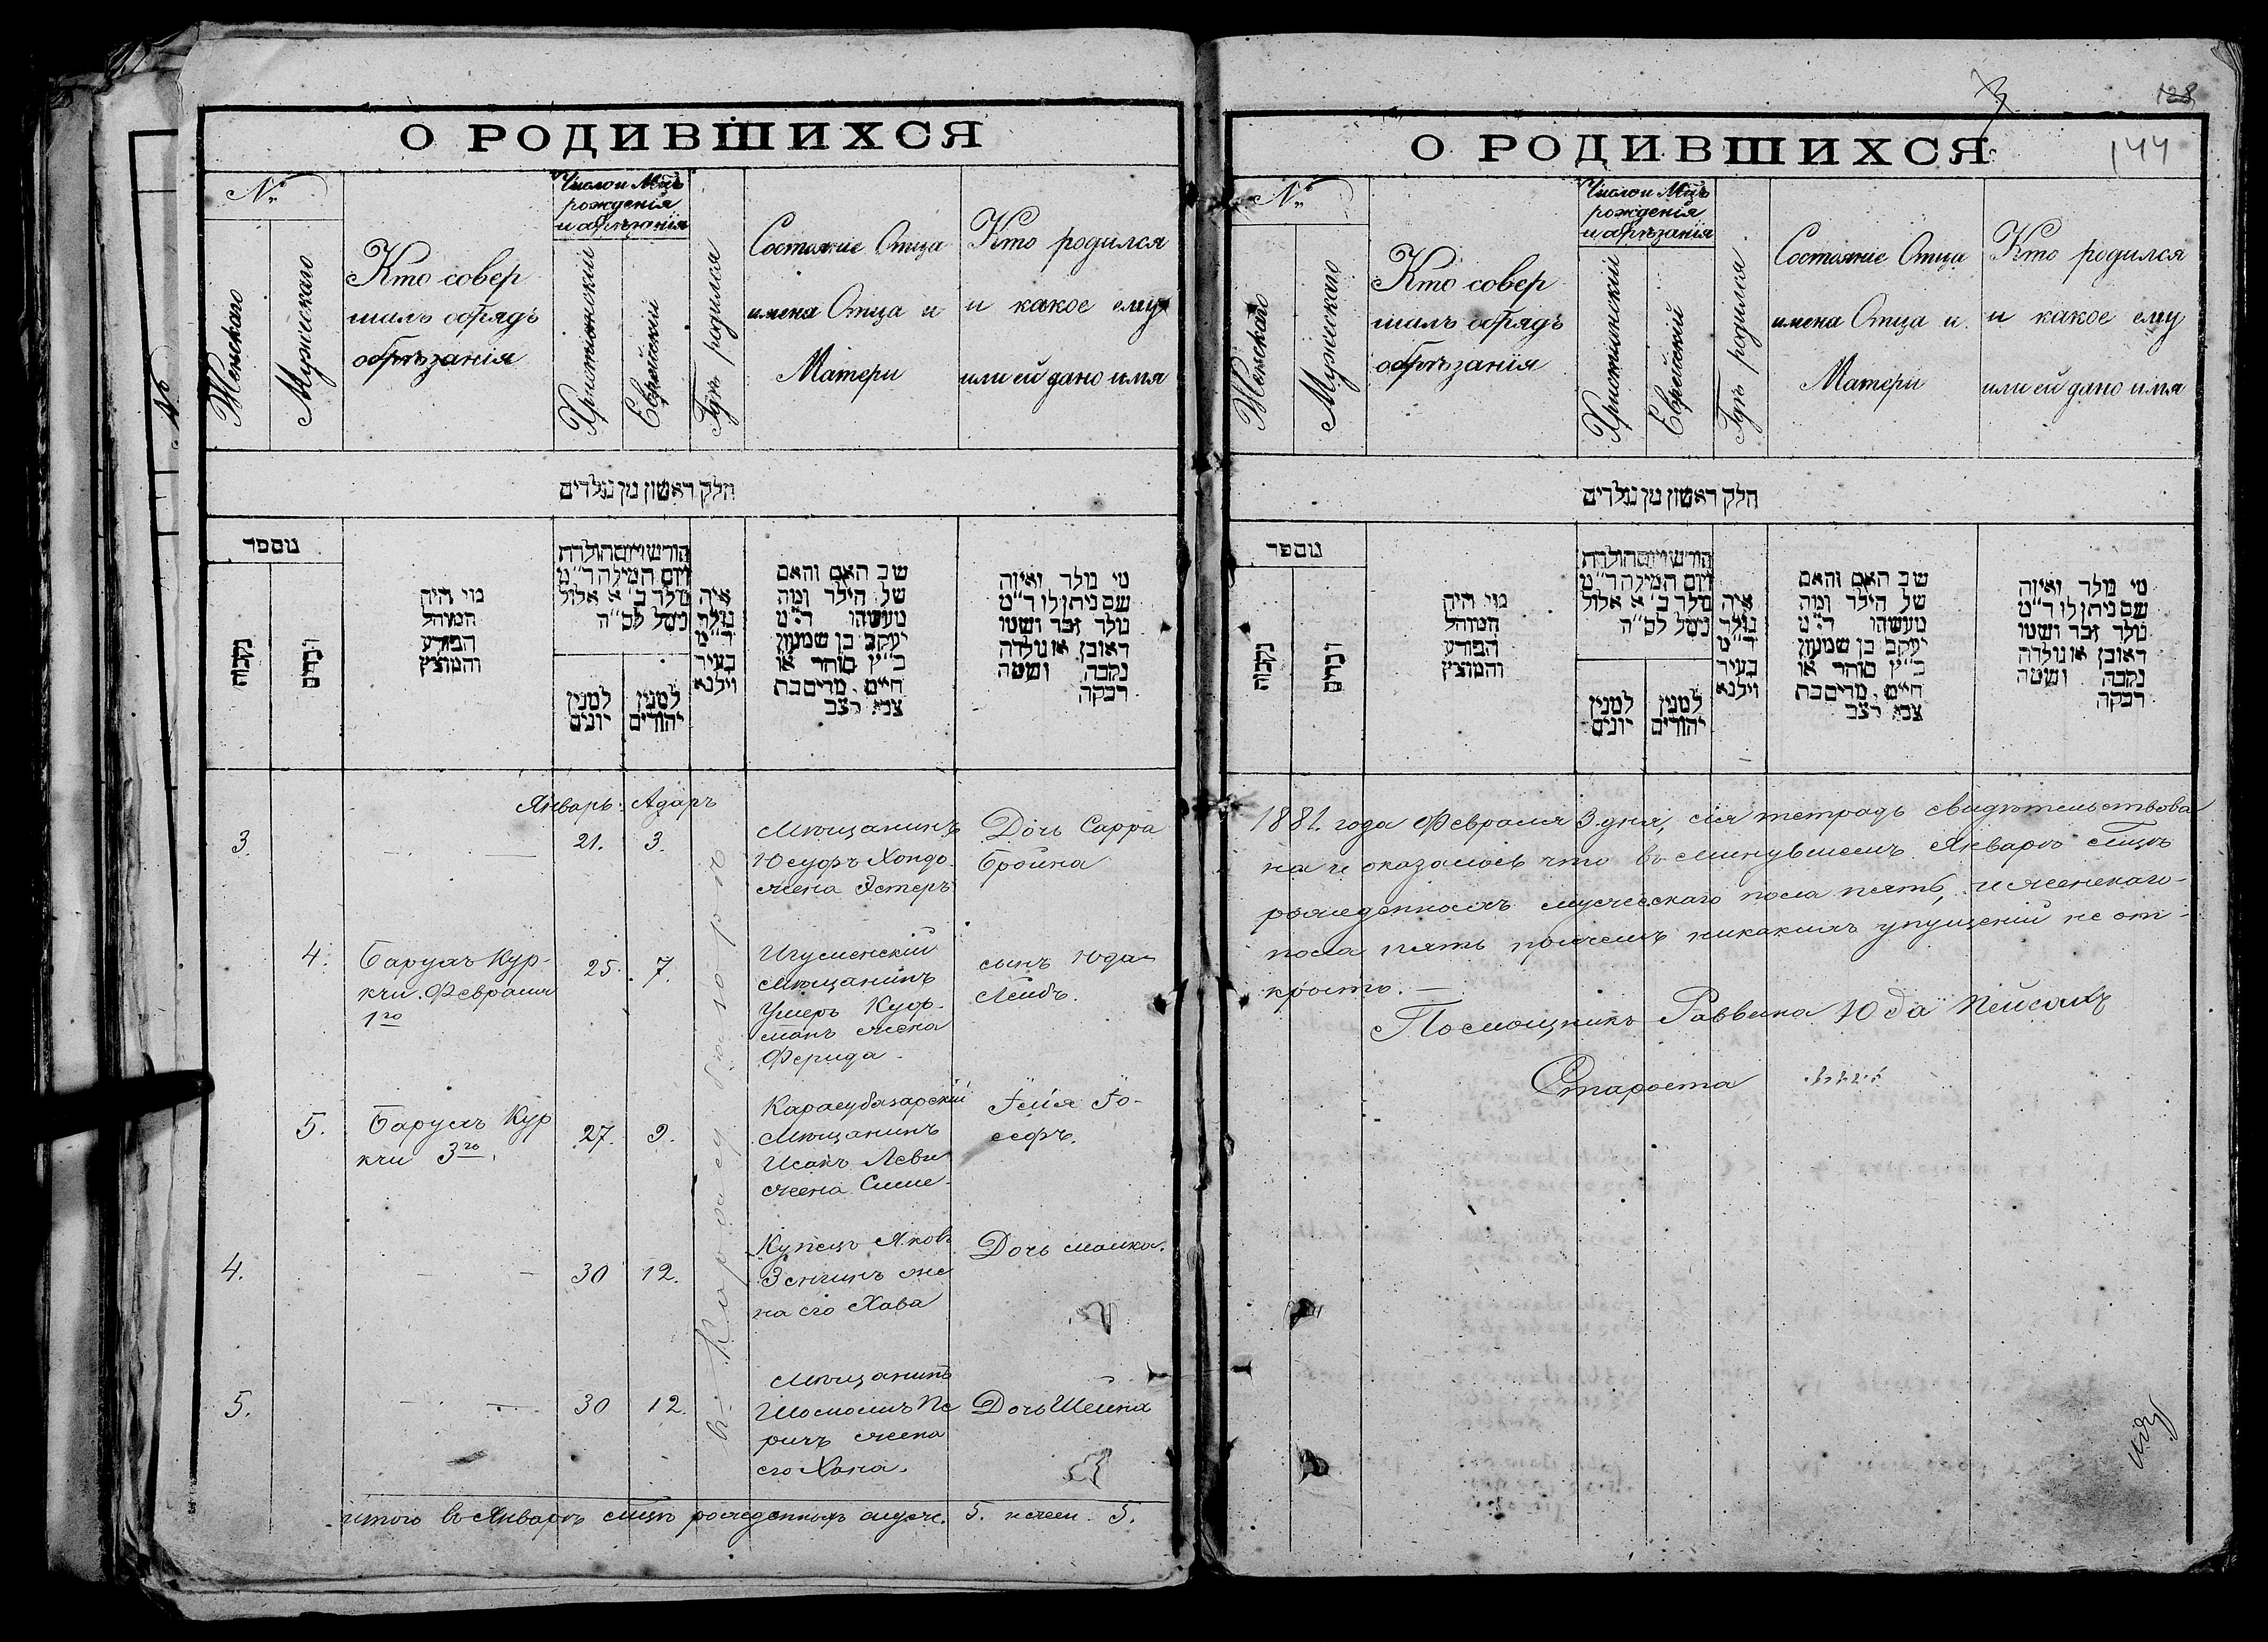 О РОДИВШИХСЯ
№
Женскаго
Мужескаго
Кто совер
шалъ обрядъ
обрѣзанія
Число и Мцъ
рожденія
и обрѣзанія
Христіянскій
Еврейскій
Гдѣ родился
Состояніе Отца
имена Отца и
Матери
Кто родился
и какое ему
или ей дано имя
חלק ראשון מן נולדים
מספר
נקבות
זכרים
מי היה
המוהל
הפורע
והמוצץ
חודש ויום הולדת
ויום המילה ד"מ
נולד ב' א אלול
נימל לס"ה
למנין
יונים
למנין
יהודים
איה
נולד
ד"מ
בעיר
וילנא
שב האם והאם
של הילד ומה
מעשהו ד"מ
יעקב בן שמעון
כ"ץ סוחר או
חיים. מרים בת
צבי רצב
מי נולד ואיזה
שם ניתן לו ד"מ
נולד זכר ושמו
ראובן או נולדה
נקבה ושמה
רבקה
Январь. Адаръ
3. — — 21. 3. Мѣщанинъ Дочь Сарра
Юсуфъ Хондо. Бройна
жена Эстеръ
4. Барухъ Кур- 25. 7. Игуменскій сынъ Юда-
кчи. Февраля Мѣщанинъ Лейбъ.
1го Ушеръ Куф-
манъ жена
Фрида.
5. Барухъ Кур 27. 9. Карасубазарскій
кчи 3го. Мѣщанинъ сефъ.
Исакъ Леви
жена Симе.
4. — — 30 12. Купецъ Яковъ Дочь малка.
Зенгинъ же
на его Хава
5. — — 30 12. Мѣщанинъ
Шоломъ Пе Дочь Шейна
ричъ жена
его Хана.
въ Карасубазарѣ
итого въ Январѣ мцѣ рожденныхъ муж. 5. и жен. 5.
128
144
О РОДИВШИХСЯ
№
Женскаго
Мужескаго
Кто совер
шалъ обрядъ
обрѣзанія
Число и Мцъ
рожденія
и обрѣзанія
Христіянскій
Еврейскій
Гдѣ родился
Состояніе Отца
имена Отца и
Матери
Кто родился
и какое ему
или ей дано имя
חלק ראשון מן נולדים
מספר
נקבות
זכרים
מי היה
המוהל
הפורע
והמוצץ
חודש ויום הולדת
ויום המילה ד"מ
נולד ב' א אלול
נימל לס"ה
למנין
יונים
למנין
יהודים
איה
נולד
ד"מ
בעיר
וילנא
שב האם והאם
של הילד ומה
מעשהו ד"מ
יעקב בן שמעון
כ"ץ סוחר או
חיים. מרים בת
צבי רצב
מי נולד ואיזה
שם ניתן לו ד"מ
נולד זכר ושמו
ראובן או נולדה
נקבה ושמה
רבקה
1881. года Февраля 3. дня, сія тетрадь свидѣтельствова
на и оказалось что въ минувшемъ Январѣ мцѣ
рожденныхъ мужескаго пола пять, и женскаго-
пола пять причемъ никакихъ упущеній не от-
крыто. —
Помощникъ Раввина Юда Пейсахъ
Староста